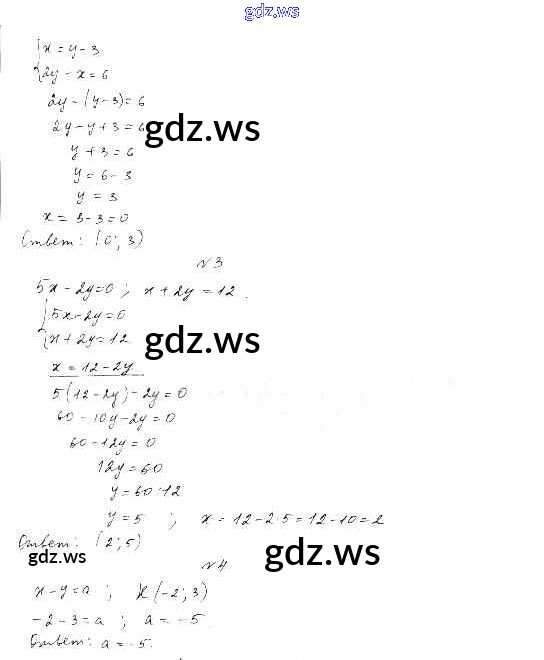 gdz.ws
{x = y - 3
{2y - x = 6
2y - (y - 3) = 6
2y - y + 3 = 6
gdz.ws
y + 3 = 6
y = 6 - 3
y = 3
x = 3 - 3 = 0
Ответ: (0; 3)
N 3
5x - 2y = 0 ; x + 2y = 12.
{5x - 2y = 0
{x + 2y = 12
gdz.ws
x = 12 - 2y
5(12 - 2y) - 2y = 0
60 - 10y - 2y = 0
60 - 12y = 0
12y = 60
y = 60 : 12
y = 5 ; x = 12 - 2·5 = 12 - 10 = 2
Ответ: (2; 5)
gdz.ws
gdz.ws
N 4
x - y = a ; K(-2; 3)
-2 - 3 = a ; a = -5.
Ответ: a = -5.